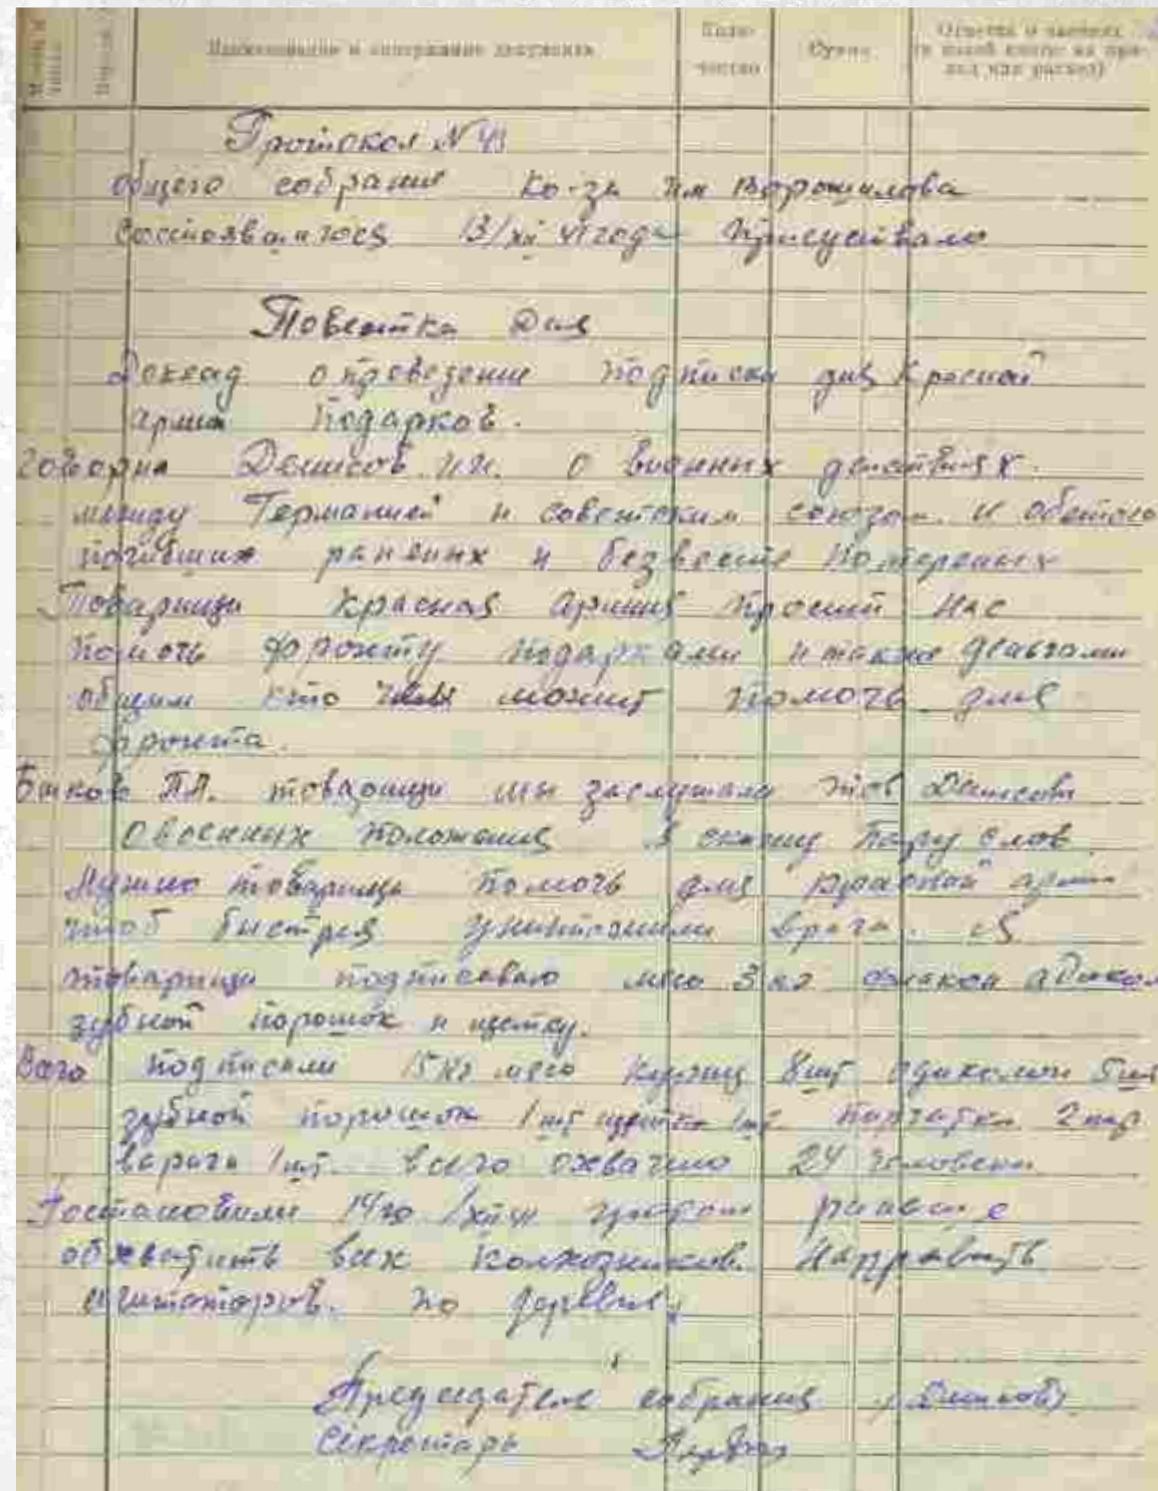 Наименование и содержание документа
Коли-
чество
Сумма
Отметка о
Протокол N 43
общего собрание ко-за им Ворошилова
Состоявшегося 13/XII 41 года Присуствало
Повестка Дня
Доклад о проведение подписки для Красной
армии Подарков.
Говорил Денисов и.и. о военных действиях
между Германией и советским союзом. и
погибших раненых и безвести потеренных
Товарищи Красная армия просит нас
помочь фронту подарками и также деньгами
общим кто чем может помочь для
фронта.
Быков П.А. товарищи мы заслушали тов Денисова
о военных положения я скажу пару слов
Нужно товарищи помочь для красной армии
чтоб быстрея уничтожили врага. я
товарищи подписоваю мясо 3 кг флакон адикол
зубной порошок и щетку.
Всего подписали 15 кг мясо курицы 8 шт одиколон 5 шт
зубной порошок 1 шт щетка 1 шт перчатки 2 пар
1 шт. всего охвачено 24 человека
Постановили 14го/XII 41 утром
обхватить всех колхозников. Направить
агитоторов. по деревне.
Председатель собрания (Денисов)
Секретарь